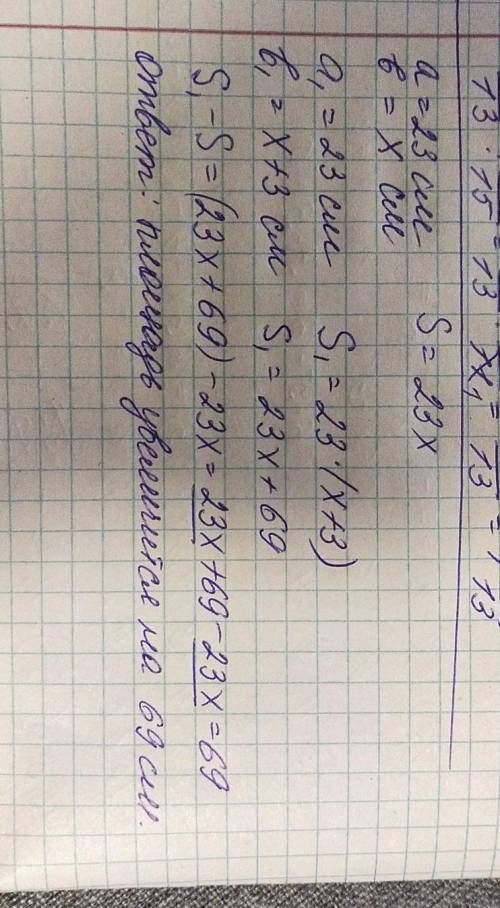 13 · 15 = 13 x₁ = 13 = 1 13
a = 23 см S = 23x
b = x см
a₁ = 23 см S₁ = 23·(x+3)
b₁ = x+3 см S₁ = 23x + 69
S₁ - S = (23x + 69) - 23x = 23x + 69 - 23x = 69
Ответ: площадь увеличится на 69 см.